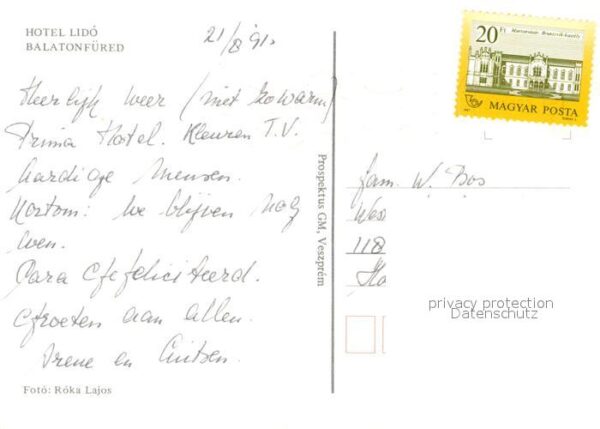 HOTEL LIDÓ
BALATONFÜRED
21/8 '91.
Heerlijk weer (niet te warm)
Prima Hotel. Kleuren T.V.
Aardige Mensen.
Kortom: We blijven nog
even.
Para Gefeliciteerd.
Groeten aan allen.
Irene en
Fotó: Róka Lajos
Prospektus GM, Veszprém
20 Ft
MAGYAR POSTA
fam. W. Bos
118
privacy protection
Datenschutz